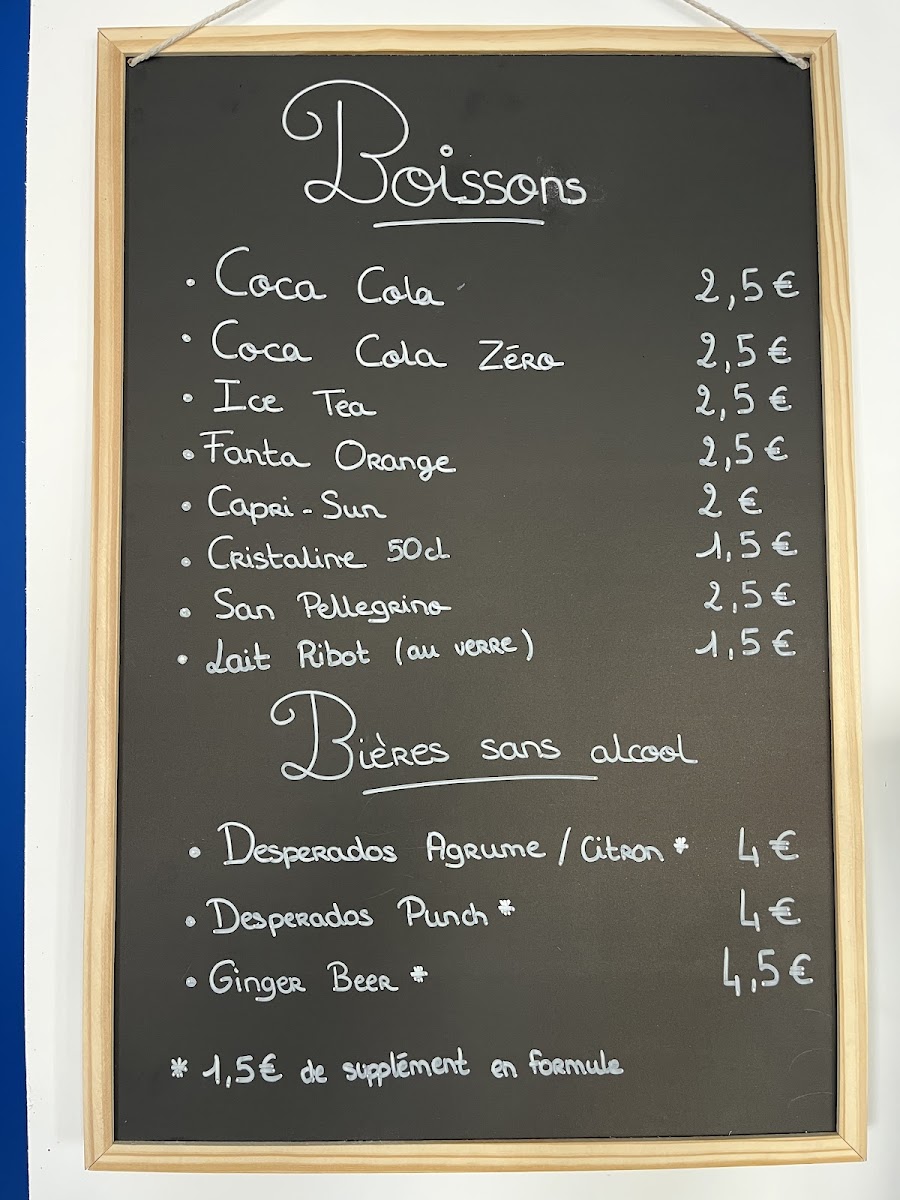 Boissons
• Coca Cola 2,5€
• Coca Cola Zéro 2,5€
• Ice Tea 2,5€
• Fanta Orange 2,5€
• Capri-Sun 2€
• Cristaline 50cl 1,5€
• San Pellegrino 2,5€
• Lait Ribot (au verre) 1,5€
Bières sans alcool
• Desperados Agrume / Citron* 4€
• Desperados Punch* 4€
• Ginger Beer* 4,5€
* 1,5€ de supplément en formule